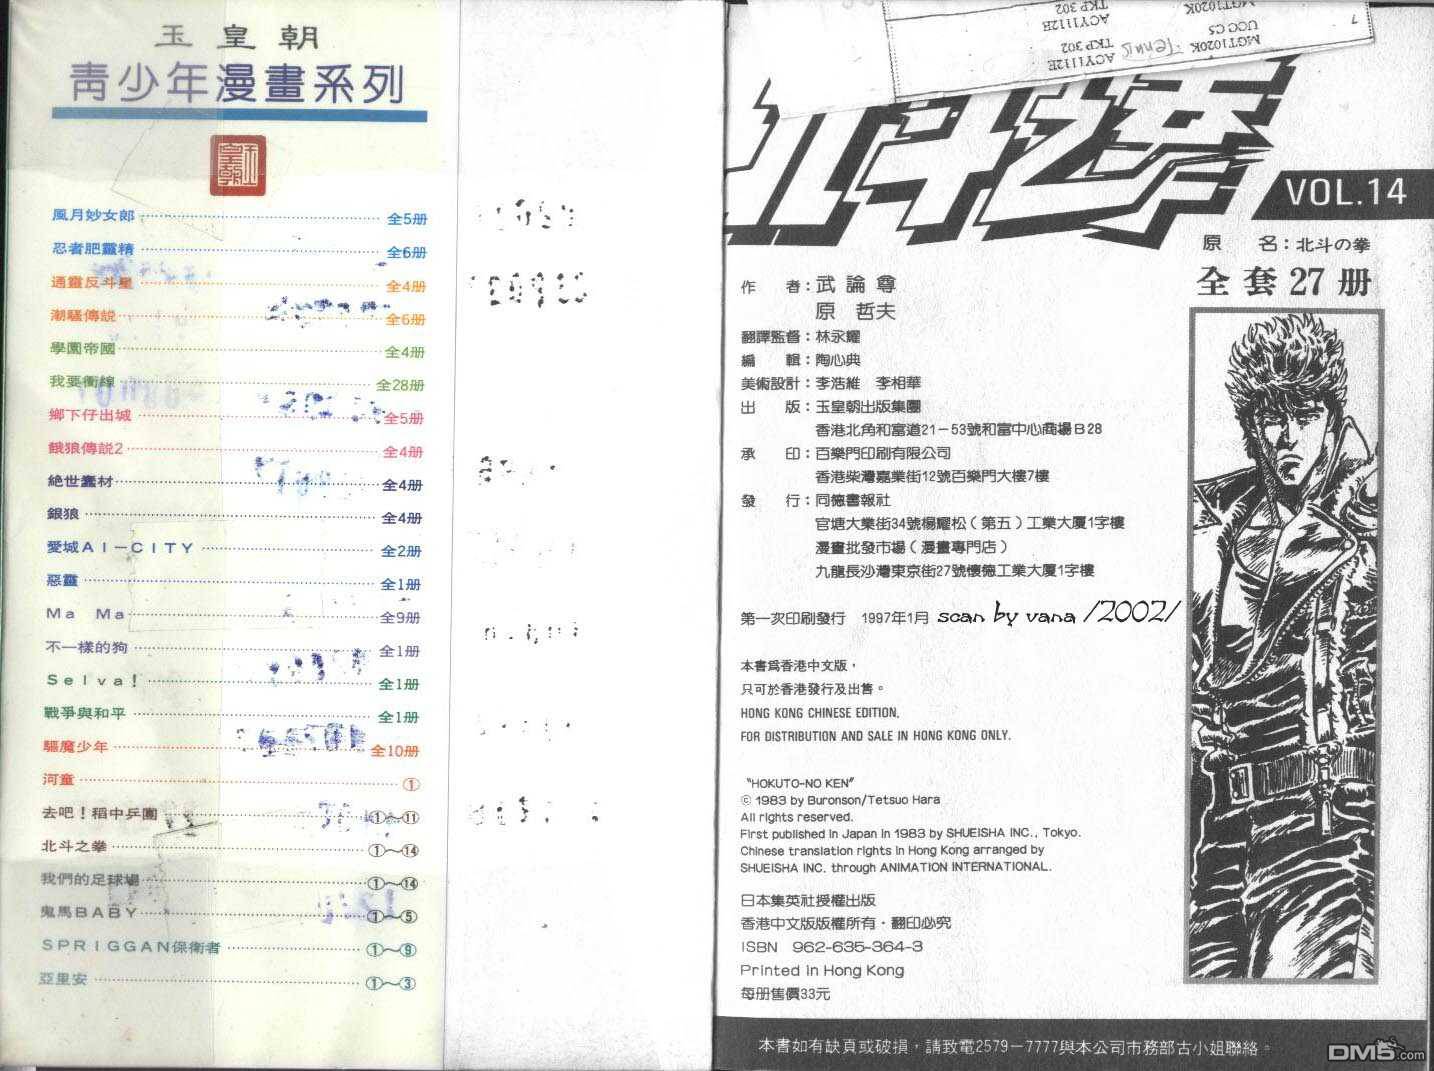 玉皇朝
青少年漫畫系列
風月妙女郎 全5册
忍者肥靈精 全6册
通靈反斗星 全4册
潮騷傳説 全6册
學園帝國 全4册
我要衝線 全28册
鄉下仔出城 全5册
餓狼傳説2 全4册
絶世蠢材 全4册
銀狼 全4册
愛城AI－CITY 全2册
惡靈 全1册
Ma Ma 全9册
不一樣的狗 全1册
Selva! 全1册
戰爭與和平 全1册
驅魔少年 全10册
河童 ①
去吧！稻中乒團 ①～⑪
北斗之拳 ①～⑭
我們的足球場 ①～⑭
鬼馬BABY ①～⑤
SPRIGGAN保衛者 ①～⑨
亞里安 ①～③
MGT1020K
UCC C5
MGT1020K
ACY1112E
TKP 302
ACY1112E
TKP 302
Tennis
7
北斗之拳
VOL.14
原 名：北斗の拳
全套27册
作 者：武論尊
原 哲夫
翻譯監督：林永耀
編 輯：陶心典
美術設計：李浩維 李相華
出 版：玉皇朝出版集團
香港北角和富道21－53號和富中心商場B28
承 印：百樂門印刷有限公司
香港柴灣嘉業街12號百樂門大樓7樓
發 行：同德書報社
官塘大業街34號楊耀松（第五）工業大廈1字樓
漫畫批發市場（漫畫專門店）
九龍長沙灣東京街27號懷德工業大廈1字樓
第一次印刷發行 1997年1月 scan by vana /2002/
本書爲香港中文版，
只可於香港發行及出售。
HONG KONG CHINESE EDITION,
FOR DISTRIBUTION AND SALE IN HONG KONG ONLY.
"HOKUTO-NO KEN"
© 1983 by Buronson/Tetsuo Hara
All rights reserved.
First published in Japan in 1983 by SHUEISHA INC., Tokyo.
Chinese translation rights in Hong Kong arranged by
SHUEISHA INC. through ANIMATION INTERNATIONAL.
日本集英社授權出版
香港中文版版權所有・翻印必究
ISBN 962-635-364-3
Printed in Hong Kong
每册售價33元
本書如有缺頁或破損，請致電2579－7777與本公司市務部古小姐聯絡。
DM5.com